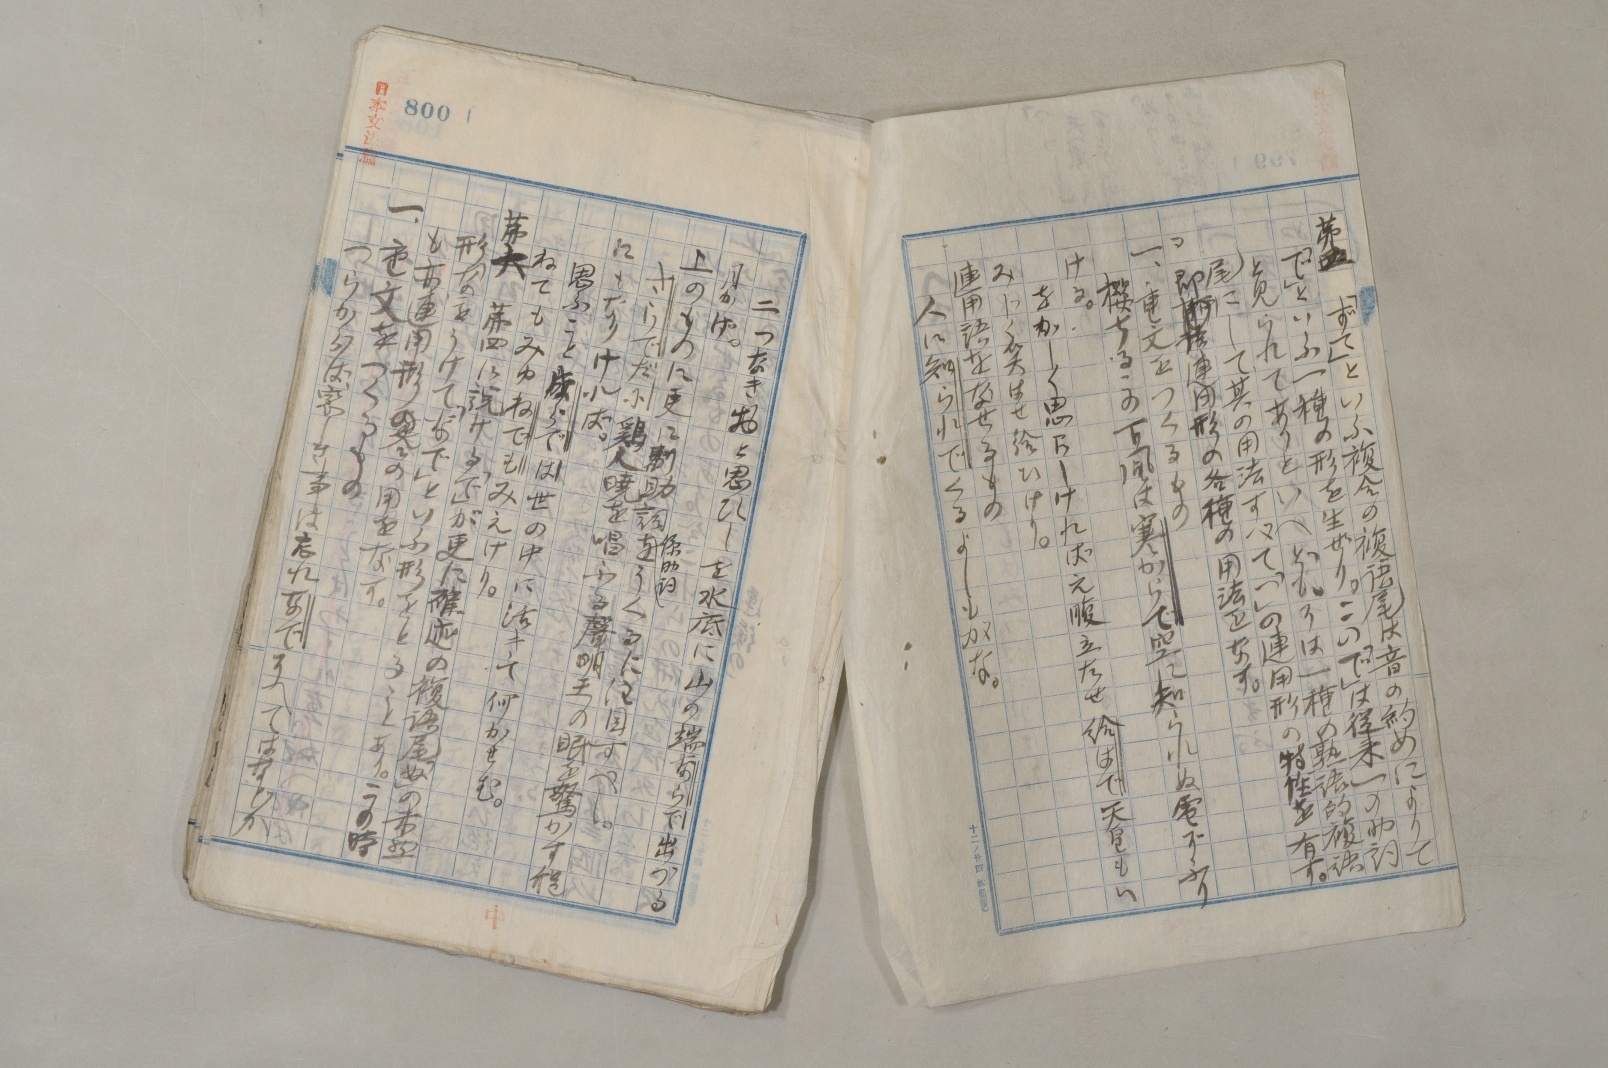 第五
「ずて」といふ複合の複語尾は音の約めによりて
「で」といふ一種の形を生ぜり。この「で」は従来一の助詞
と見られてありといへども、そは一種の熟語的複語
尾にして其の用法すべて「つ」の連用形の特性を有す。
即連用形の各種の用法をなす。
一、重文をつくるもの
桜ちる木の下風は寒からで空に知られぬ雪ぞふり
ける。
をかしく思召しければ、元腹立たせ給はで天皇もい
みじく笑はせ給ひけり。
連用語をなせるもの
人に知られでくるよしもがな。
800
日本文法論
二つなき物と思ひしを水底に山の端ならで出づる
月かげ。
上のものに更に副助詞係助詞をうくるに注目すべし。
さらでだに
鶏人暁を唱ふる声明王の眠を驚かす程
にもなりければ。
思ふこと成らでは世の中に活きて何かせむ。
ねてもみゆねでもみえけり。
第六
第四に説ける「で」が更に確述の複語尾「ぬ」の未然
形「な」をうけて「なで」といふ形をとることあり。この時
も亦連用形の各の用をなす。
一、重文をつくるもの
つらからば
事は忘れなで
中